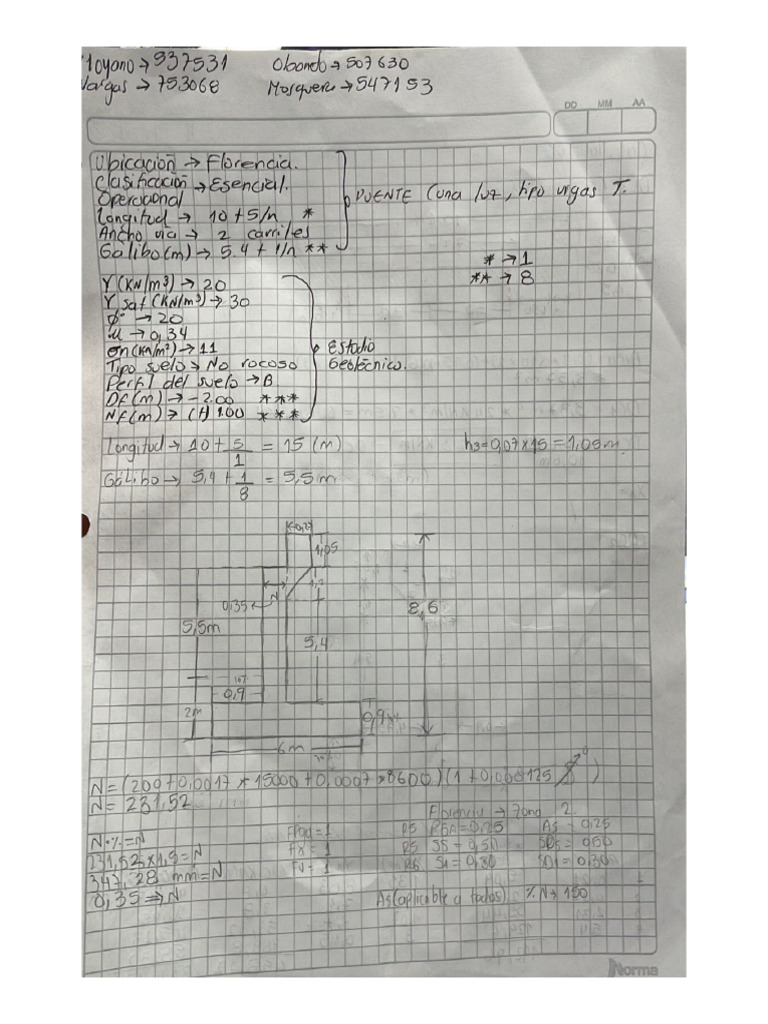 Moyano → 937531 Obando → 507630
Vargas → 753068 Mosquera → 547153
DD MM AA
Ubicación → Florencia.
Clasificación → Esencial.
Operacional
Longitud → 10 + 5/n *
Ancho vía → 2 carriles
Galibo (m) → 5.4 + 1/n **
PUENTE (una luz, tipo vigas T.
* → 1
** → 8
γ (KN/m³) → 20
γ sat (KN/m³) → 30
ϕ → 20
μ → 0,34
σn (kn/m²) → 11
Tipo suelo → No rocoso
Perfil del suelo → B
Df (m) → -2.00 ***
Nf (m) → (+) 1.00 ***
Estudio
Geotécnico.
Longitud → 10 + 5/1 = 15 (m) h3 = 0,07 x 15 = 1,05 m
Gálibo → 5,4 + 1/8 = 5,5 m
1,05
N
0,35
8,6
5,5m
5,4
0,9
2m
6m
N = (200 + 0,0017 * 15000 + 0,0007 * 8600) (1 + 0,000125 )
N = 231,52
Florencia → Zona 2.
N·% = N Fpga = 1 PGA = 0,25 As = 0,25
231,52 x 1,5 = N Fx = 1 SS = 0,50 SDs = 0,50
347,28 mm = N Fv = 1 S1 = 0,30 SD1 = 0,30
0,35 ⇒ N As (aplicable a todos) % N → 150
Norma